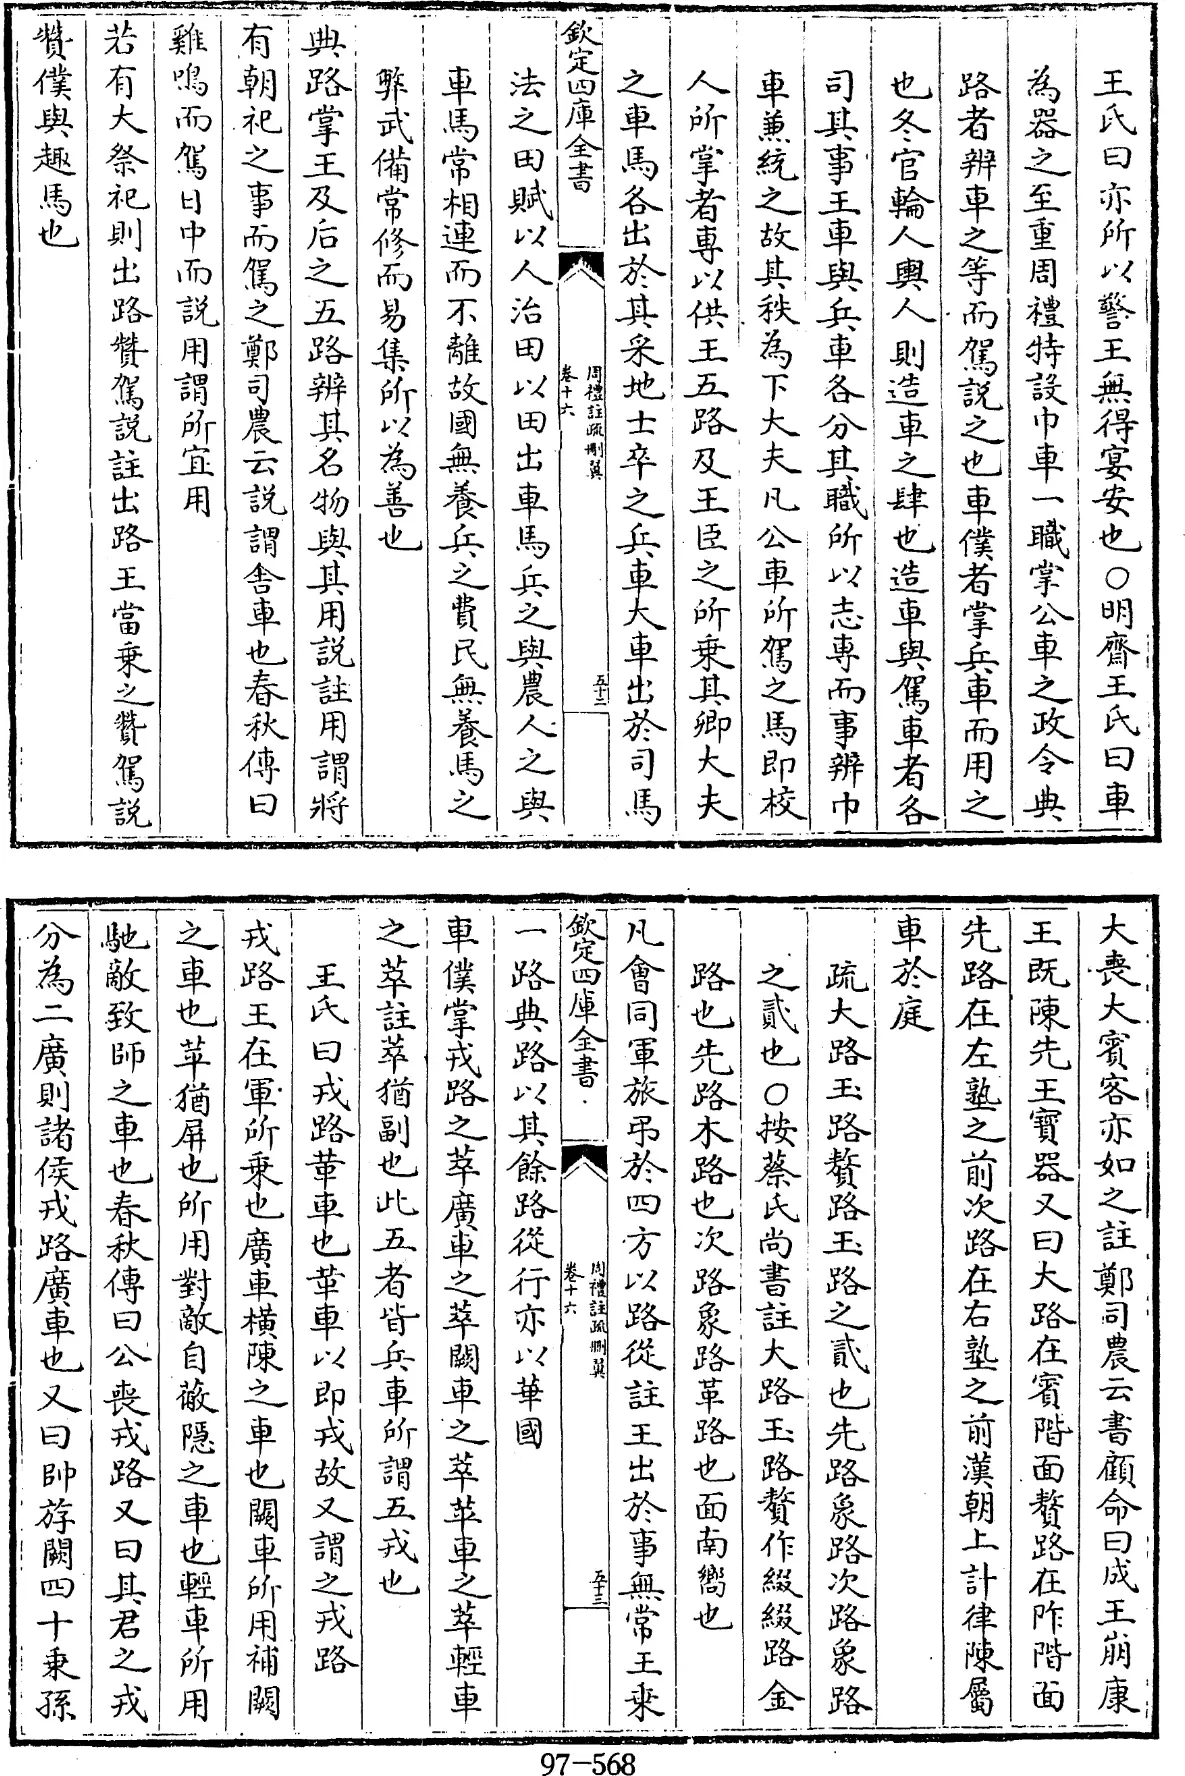 王氏曰亦所以警王無得宴安也○明齋王氏曰車
為器之至重周禮特設巾車一職掌公車之政令典
路者辨車之等而駕説之也車僕者掌兵車而用之
也冬官輪人輿人則造車之肆也造車與駕車者各
司其事王車與兵車各分其職所以志專而事辨巾
車兼統之故其秩為下大夫凡公車所駕之馬即校
人所掌者專以供王五路及王臣之所乘其卿大夫
之車馬各出於其采地士卒之兵車大車出於司馬
欽定四庫全書
周禮註疏刪翼
卷十六
五十二
法之田賦以人治田以田出車馬兵之與農人之與
車馬常相連而不離故國無養兵之費民無養馬之
弊武備常修而易集所以為善也
典路掌王及后之五路辨其名物與其用説註用謂將
有朝祀之事而駕之鄭司農云説謂舍車也春秋傳曰
雞鳴而駕日中而説用謂所宜用
若有大祭祀則出路贊駕説註出路王當乘之贊駕説
贊僕與趣馬也
大喪大賓客亦如之註鄭司農云書顧命曰成王崩康
王既陳先王寶器又曰大路在賓階面贅路在阼階面
先路在左塾之前次路在右塾之前漢朝上計律陳屬
車於庭
疏大路玉路贅路玉路之貳也先路象路次路象路
之貳也○按蔡氏尚書註大路玉路贅作綴綴路金
路也先路木路也次路象路革路也面南嚮也
凡會同軍旅弔於四方以路從註王出於事無常王乘
欽定四庫全書
周禮註疏刪翼
卷十六
五十三
一路典路以其餘路從行亦以華國
車僕掌戎路之萃廣車之萃闕車之萃苹車之萃輕車
之萃註萃猶副也此五者皆兵車所謂五戎也
王氏曰戎路革車也革車以即戎故又謂之戎路
戎路王在軍所乘也廣車橫陳之車也闕車所用補闕
之車也苹猶屏也所用對敵自蔽隱之車也輕車所用
馳敵致師之車也春秋傳曰公喪戎路又曰其君之戎
分為二廣則諸侯戎路廣車也又曰帥斿闕四十乘孫
97-568